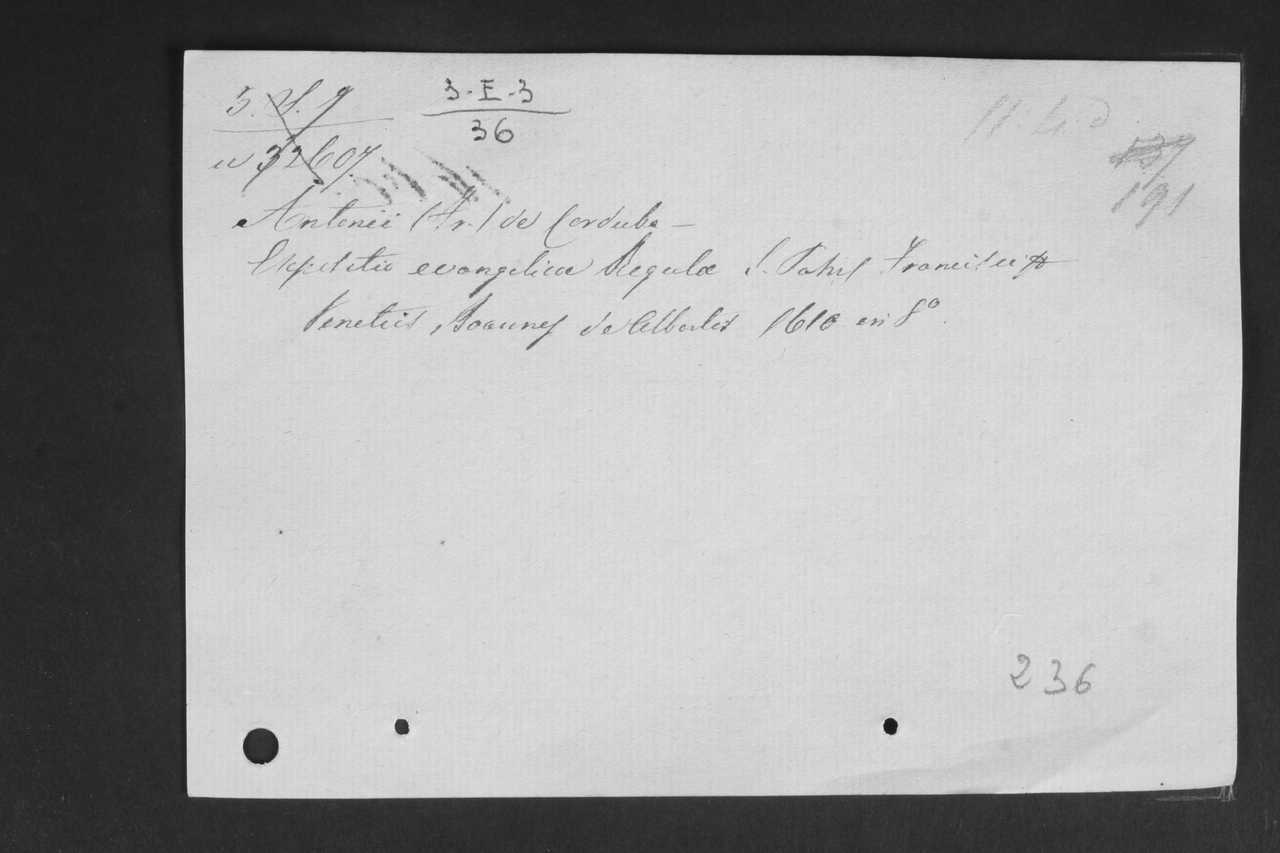 3-E-3
36
191
Antonii (Fr.) de Corduba —
Expositio evangelicæ Regulæ S. Patris Francisci
Venetiis, Joannes de Albertis 1610 en 8º.
236